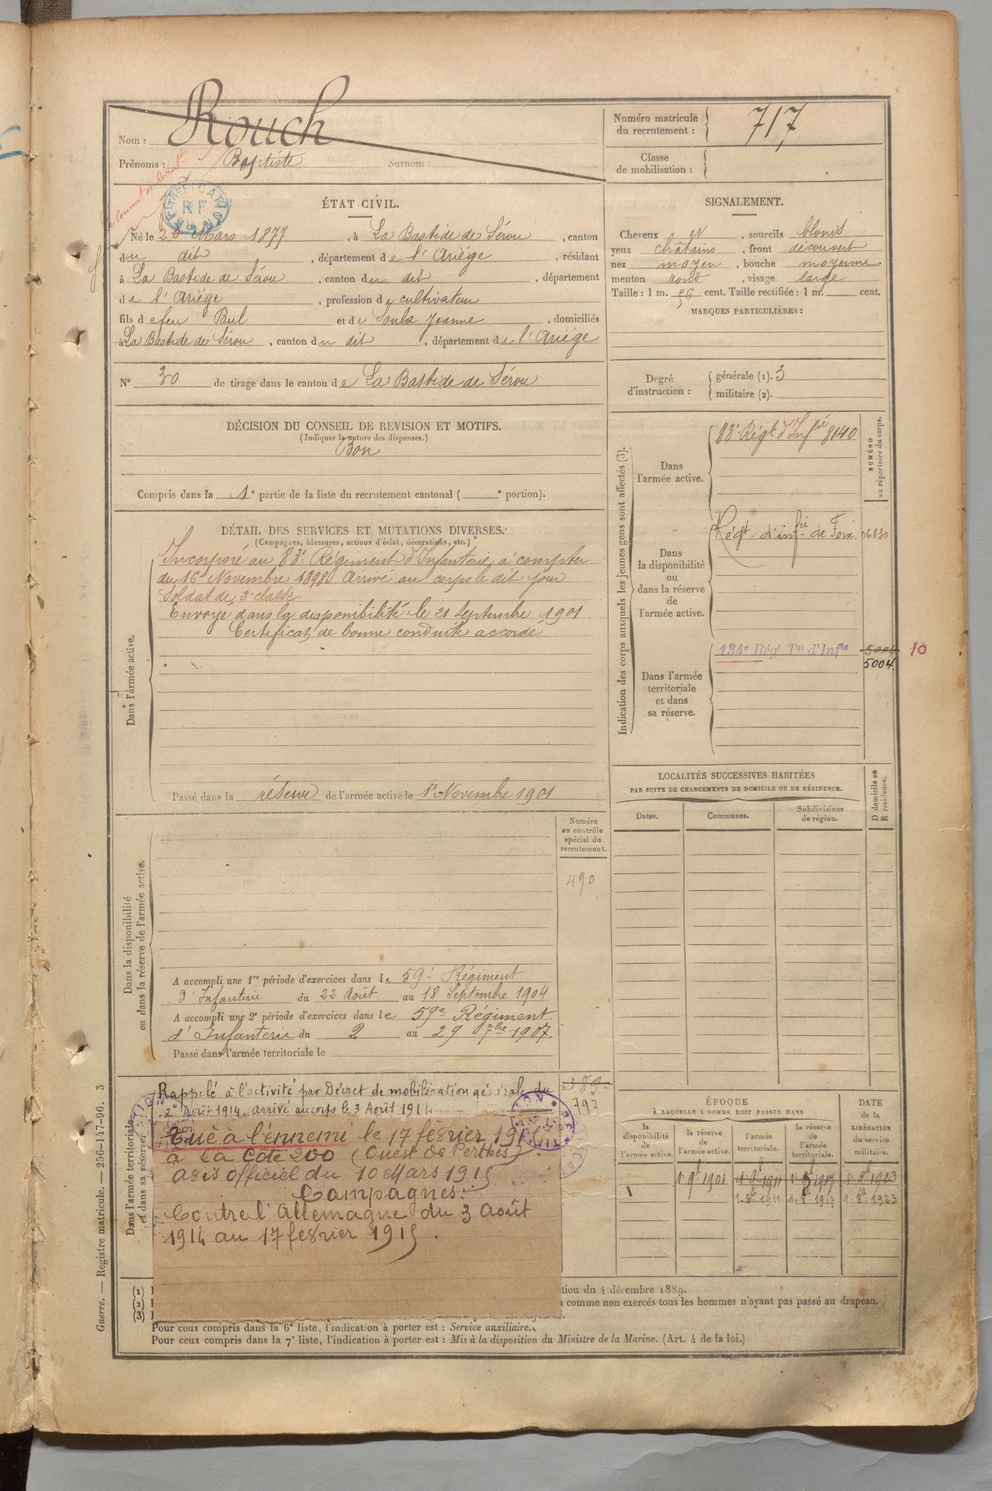 Nom : Rouch
Prénoms : Baptiste Surnom :
Numéro matricule du recrutement : 717
Classe de mobilisation :
ÉTAT CIVIL.
Né le 26 Mars 1877, à La Bastide de Sérou, canton
du dit, département de l'Ariège, résidant
à La Bastide de Sérou, canton du dit, département
de l'Ariège, profession de cultivateur
fils de feu Bul et de Soula Jeanne, domiciliés
à La Bastide de Sérou, canton du dit, département de l'Ariège
N° 30 de tirage dans le canton de La Bastide de Sérou
SIGNALEMENT.
Cheveux et, sourcils blonds
yeux châtains, front découvert
nez moyen, bouche moyenne
menton rond, visage large
Taille : 1 m. 56 cent. Taille rectifiée : 1 m. cent.
MARQUES PARTICULIÈRES :
Degré d'instruction : générale (1). 3
militaire (2).
DÉCISION DU CONSEIL DE REVISION ET MOTIFS.
(Indiquer la nature des dispenses.)
Bon
Compris dans la 1e partie de la liste du recrutement cantonal ( e portion).
DÉTAIL DES SERVICES ET MUTATIONS DIVERSES.
(Campagnes, blessures, actions d'éclat, décorations, etc.)
Dans l'armée active.
Incorporé au 83e Régiment d'Infanterie, à compter
du 16 Novembre 1898. Arrivé au corps le dit jour
Soldat de 2e classe.
Envoyé dans la disponibilité le 21 Septembre 1901
Certificat de bonne conduite accordé
Passé dans la réserve de l'armée active le 1er Novembre 1901
Indication des corps auxquels les jeunes gens sont affectés (3).
NUMÉRO au répertoire du corps.
Dans l'armée active.
83e Régt d'Infrie 8140
Dans la disponibilité ou dans la réserve de l'armée active.
Régt d'infrie de Foix 06830
Dans l'armée territoriale et dans sa réserve.
134e Régt Tal d'Infie 5004 10
5004
LOCALITÉS SUCCESSIVES HABITÉES
PAR SUITE DE CHANGEMENTS DE DOMICILE OU DE RÉSIDENCE.
Dates. Communes. Subdivisions de région. D domicile ou R résidence.
Dans la disponibilité ou dans la réserve de l'armée active.
Numéro au contrôle spécial du recrutement.
490
A accompli une 1re période d'exercices dans le 59e Régiment
d'Infanterie du 22 Août au 18 Septembre 1904
A accompli une 2e période d'exercices dans le 59e Régiment
d'Infanterie du 2 au 29 7bre 1907.
Passé dans l'armée territoriale le
Dans l'armée territoriale et dans sa réserve
Rappelé à l'activité par Décret de mobilisation générale du
2 Août 1914. arrivé au corps le 3 Août 1914
797
Tué à l'ennemi le 17 février 1915
à la Côte 200 (Ouest de Perthes)
avis officiel du 10 Mars 1915
Campagnes :
Contre l'Allemagne du 3 Août
1914 au 17 février 1915.
ÉPOQUE
À LAQUELLE L'HOMME DOIT PASSER DANS
la disponibilité de l'armée active. la réserve de l'armée active. l'armée territoriale. la réserve de l'armée territoriale. DATE de la LIBÉRATION du service militaire.
1 9bre 1901
1-8bre 1911 1-8bre 1917 1-8bre 1923
(1)
(2)
(3)
tion du 4 décembre 1889.
comme non exercés tous les hommes n'ayant pas passé au drapeau.
Pour ceux compris dans la 6e liste, l'indication à porter est : Service auxiliaire.
Pour ceux compris dans la 7e liste, l'indication à porter est : Mis à la disposition du Ministre de la Marine. (Art. 4 de la loi.)
Guerre. — Registre matricule. — 256-147-96. 3